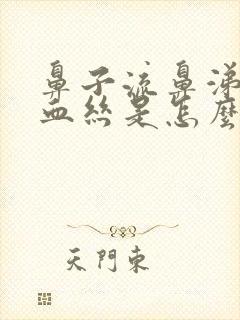 鼻子流鼻涕
血絲是怎麼
天門東